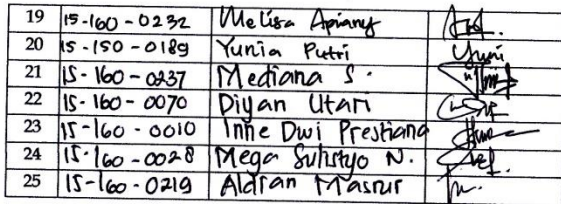 19 15-160-0232 Melisa Apiany
20 15-150-0189 Yunia Putri
21 15-160-0237 Mediana S.
22 15-160-0070 Diyan Utari
23 15-160-0010 Inne Dwi Prestiana
24 15-160-0028 Mega Sulistyo N.
25 15-160-0219 Aldian Masrur